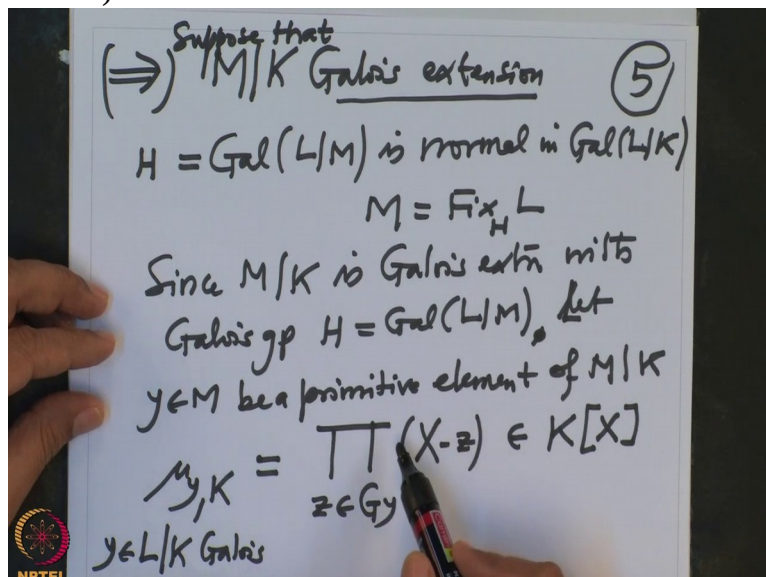 Suppose that
(⇒) M|K Galois extension
5
H = Gal(L|M) is normal in Gal(L|K)
M = Fix_H L
Since M|K is Galois extn with
Galois gp H = Gal(L|M). Let
y∈M be a primitive element of M|K
μ_{y,K} = ∏_{z∈Gy} (X-z) ∈ K[X]
y∈L|K Galois
NPTEL